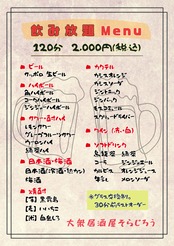 飲み放題 Menu
120分 2.000円(税込)
ビール
サッポロ 生ビール
ハイボール
角ハイボール
コークハイボール
ジンジャーハイボール
サワー・酎ハイ
レモンサワー
グレープフルーツサワー
ウーロンハイ
緑茶ハイ
日本酒・梅酒
日本酒(冷酒・熱カン)
梅酒
焼酎
【芋】黒霧島
【麦】いいちこ
カクテル
カシスオレンジ
カシスソーダ
ジントニック
ジンバック
モスコミュール
スクリュードライバー
ワイン(赤・白)
ソフトドリンク
烏龍茶 緑茶
コーラ ジンジャーエール
カルピス オレンジ
※グラス交換制。
30分前ラストオーダー
大衆居酒屋そらじろう